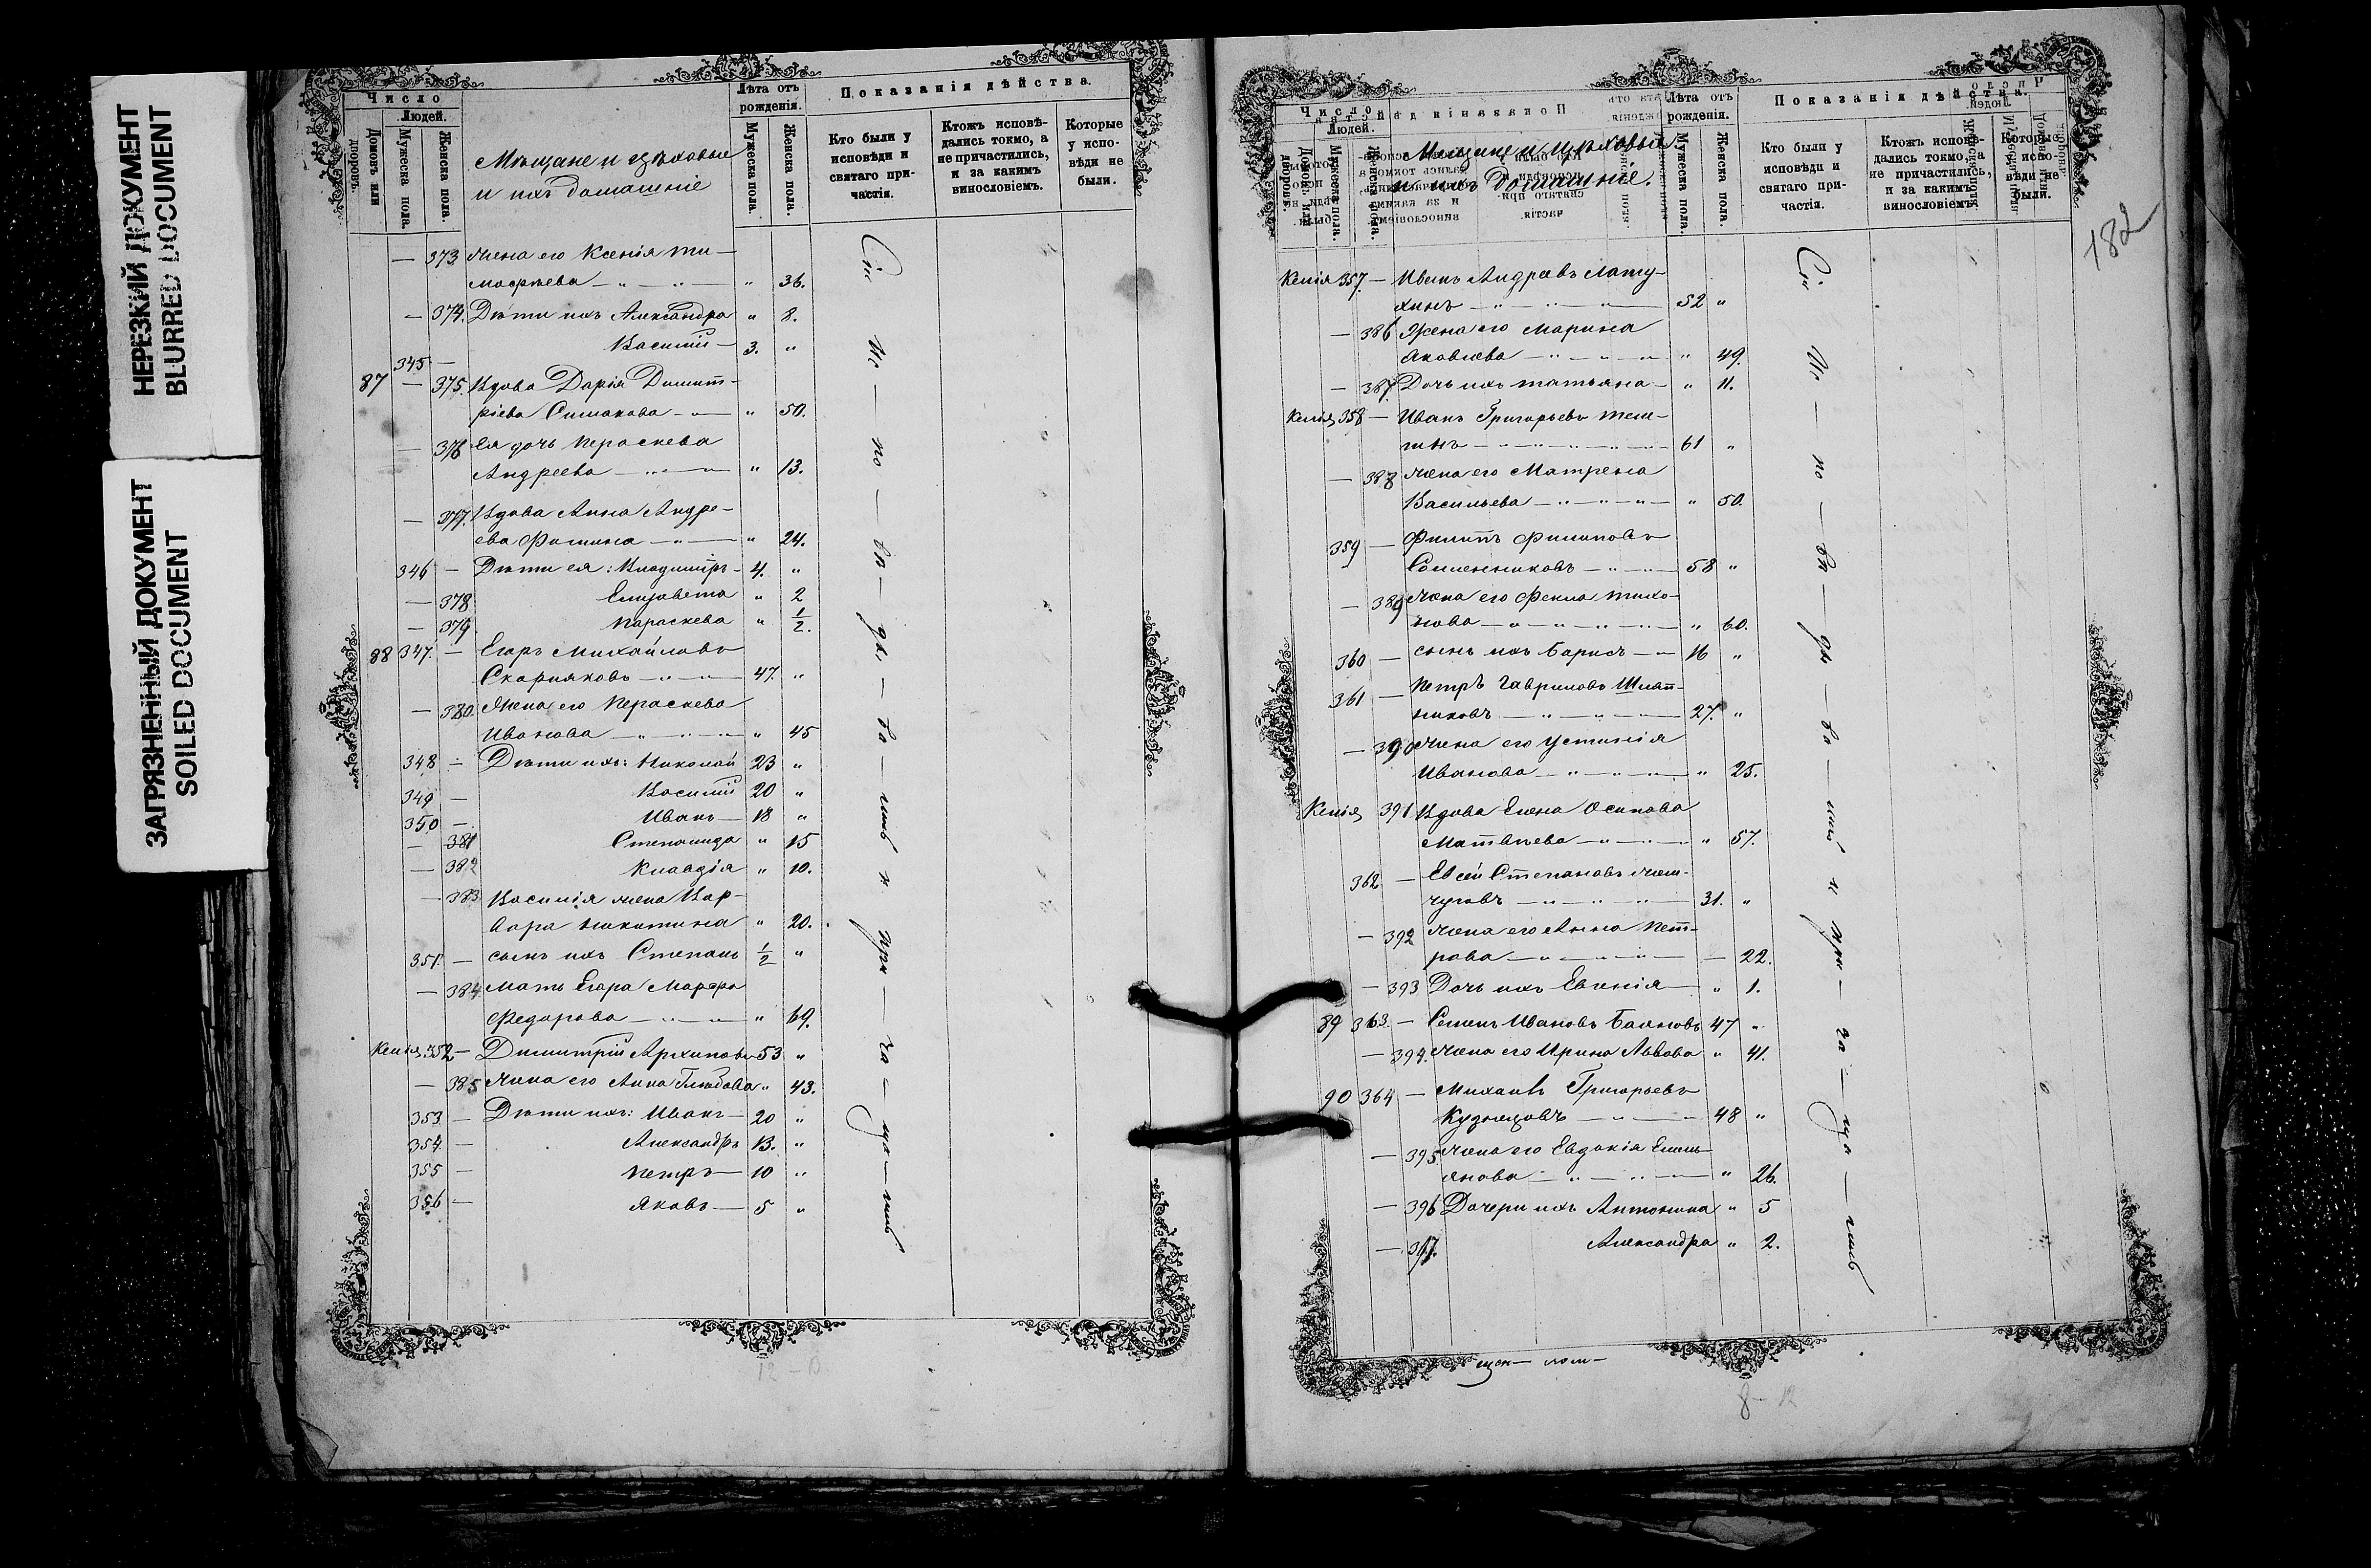 НЕРЕЗКИЙ ДОКУМЕНТ
BLURRED DOCUMENT
ЗАГРЯЗНЕННЫЙ ДОКУМЕНТ
SOILED DOCUMENT
Число
Людей.
Домовъ или дворовъ.
Мужеска пола.
Женска пола.
Мѣщане и цѣховые
и ихъ домашніе
Лѣта отъ рожденія.
Мужеска пола.
Женска пола.
Показанія дѣйства.
Кто были у исповѣди и святаго причастія.
Ктожъ исповѣдались токмо, а не причастились, и за какимъ винословіемъ.
Которые у исповѣди не были.
— 373 жена его Ксенія Ти-
моѳеева — " — " 36.
— 374. Дѣти ихъ Александра " 8.
345 — Василій — 3. "
87 — 375. Вдова Дарія Димит-
ріева Симакова — " — " 50.
— 376 Ея дочь Пераскева
Андреева — " — " 13.
— 377. Вдова Анна Андре-
ева Фомина — " — " 24.
346 — Дѣти ея: Владиміръ — 4. "
— 378 Елизавета " 2
— 379. Параскева " 1/2.
88 347. — Егоръ Михайловъ
Скорняковъ — " — 47. "
— 380. Жена его Пераскева
Иванова — " — " 45
348 — Дѣти ихъ: Николай 23 "
349 — Василій 20 "
350 — Иванъ — 18 "
— 381 Степанида " 15
— 382 Клавдія " 10.
— 383 Василія жена Вар-
вара Никитина " 20.
351. — сынъ ихъ Степанъ 1/2 "
— 384 Мать Егора Марфа
Федорова — " — " 69.
Келія 352 — Димитрій Архиповъ 53 "
— 385 Жена его Анна Глѣбова " 43.
353 — Дѣти ихъ: Иванъ — 20 "
354 — Александръ 13. "
355 — Петръ — 10 "
356 — Яковъ — 5 "
Сіи Ис — по — вѣ — да — ва — лись и при — ча — ща — лись
12 – 13
Число
Людей.
Домовъ или дворовъ.
Мужеска пола.
Женска пола.
Мѣщане и цѣховые
и ихъ домашніе.
Лѣта отъ рожденія.
Мужеска пола.
Женска пола.
Показанія дѣйства.
Кто были у исповѣди и святаго причастія.
Ктожъ исповѣдались токмо, а не причастились, и за какимъ винословіемъ.
Которые у исповѣди не были.
182
Келія 357. — Иванъ Андреевъ Лату-
хинъ — " — " — 52 "
— 386 Жена его Марина
Яковлева — " — " — " 49.
— 387. Дочь ихъ Татьяна — " 11.
Келія 358 — Иванъ Григорьевъ
— 61 "
— 388 Жена его Матрена
Васильева — " — " — " 50.
359 — Филиппъ Филиповъ
— " — 58 "
— 389 Жена его Фекла Тихо-
нова — " — " — " 60.
360 — сынъ ихъ Борисъ — 16 "
361 — Петръ Гавриловъ Шляп-
никовъ — " — " — 27. "
— 390 Жена его Устинія
Иванова — " — " — " 25.
Келія 391 Вдова Елена Осипова
Матвѣева — " — " 57.
362 — Евсей Степановъ Жем-
чуговъ — " — " — 31. "
— 392 Жена его Анна Пет-
рова — " — " — 22.
— 393 Дочь ихъ Евгенія — " 1.
89 363. — Семенъ Ивановъ Баяновъ 47 "
— 394. Жена его Ирина Львова " 41.
90 364 — Михаилъ Григорьевъ
Кузнецовъ — " — 48 "
— 395 Жена его Евдокія Емель-
янова — " — " — " 26.
— 396 Дочери ихъ Антонина " 5
— 397. Александра " 2.
Сіи Ис — по — вѣ — да — ва — лись и при — ча — ща — лись
8 – 12